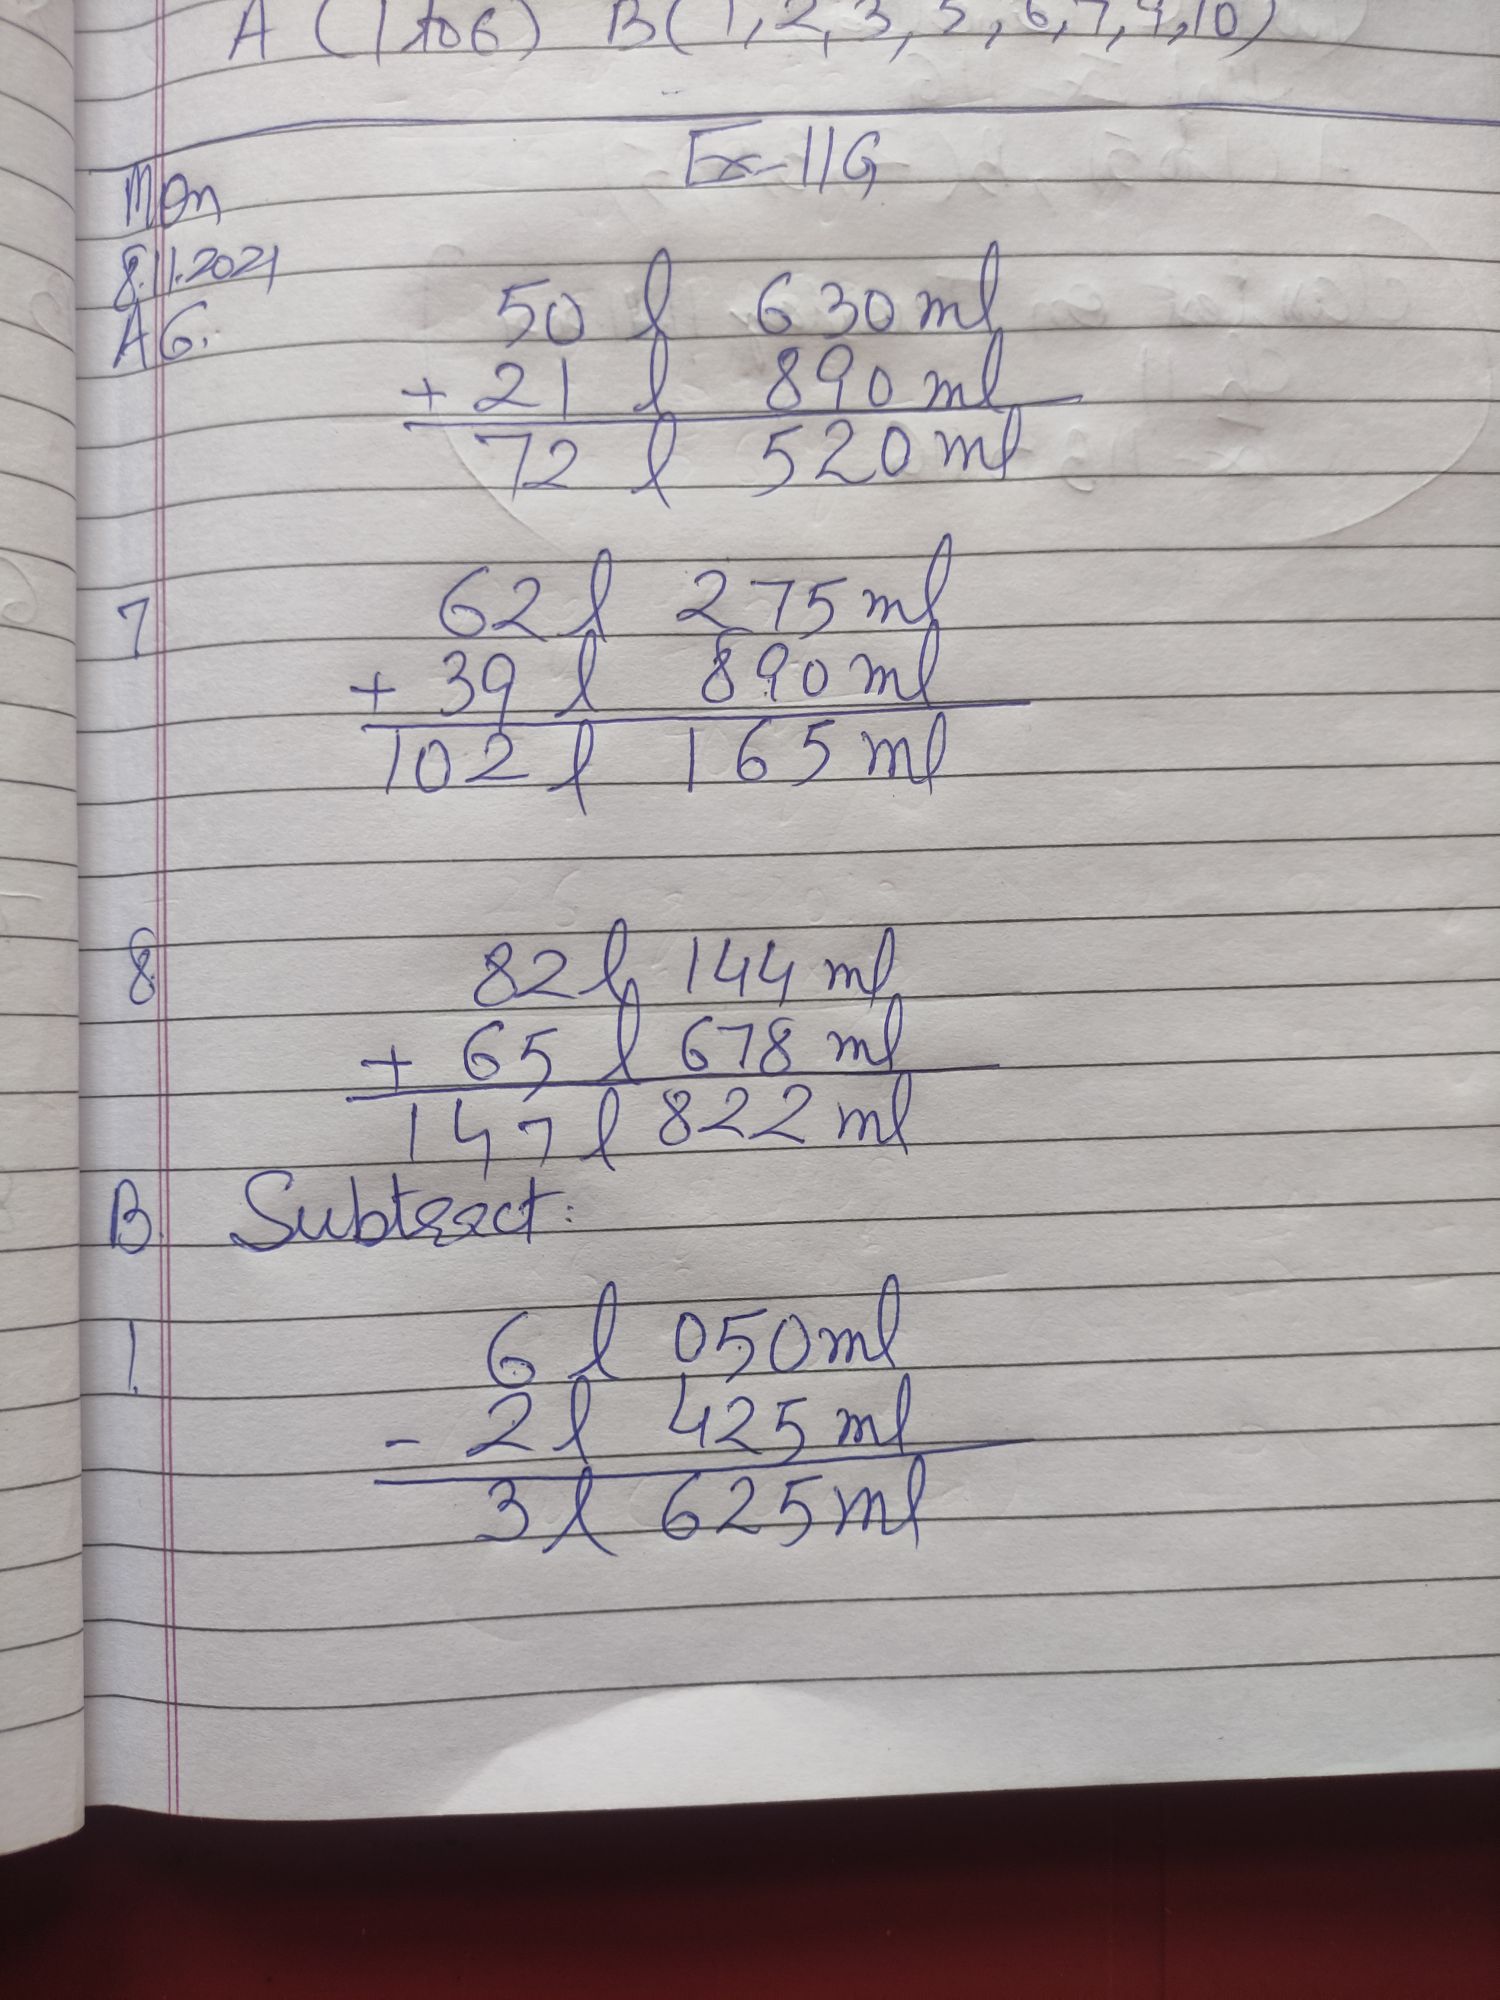 A (1 to 6) B(1, 2, 3, 5, 6, 7, 9, 10)
Ex-11G
Mon
8.11.2021
A6. 50 l 630 ml
+ 21 l 890 ml
72 l 520 ml
7 62 l 275 ml
+ 39 l 890 ml
102 l 165 ml
8. 82 l 144 ml
+ 65 l 678 ml
147 l 822 ml
B. Subtract:
1. 6 l 050 ml
- 2 l 425 ml
3 l 625 ml